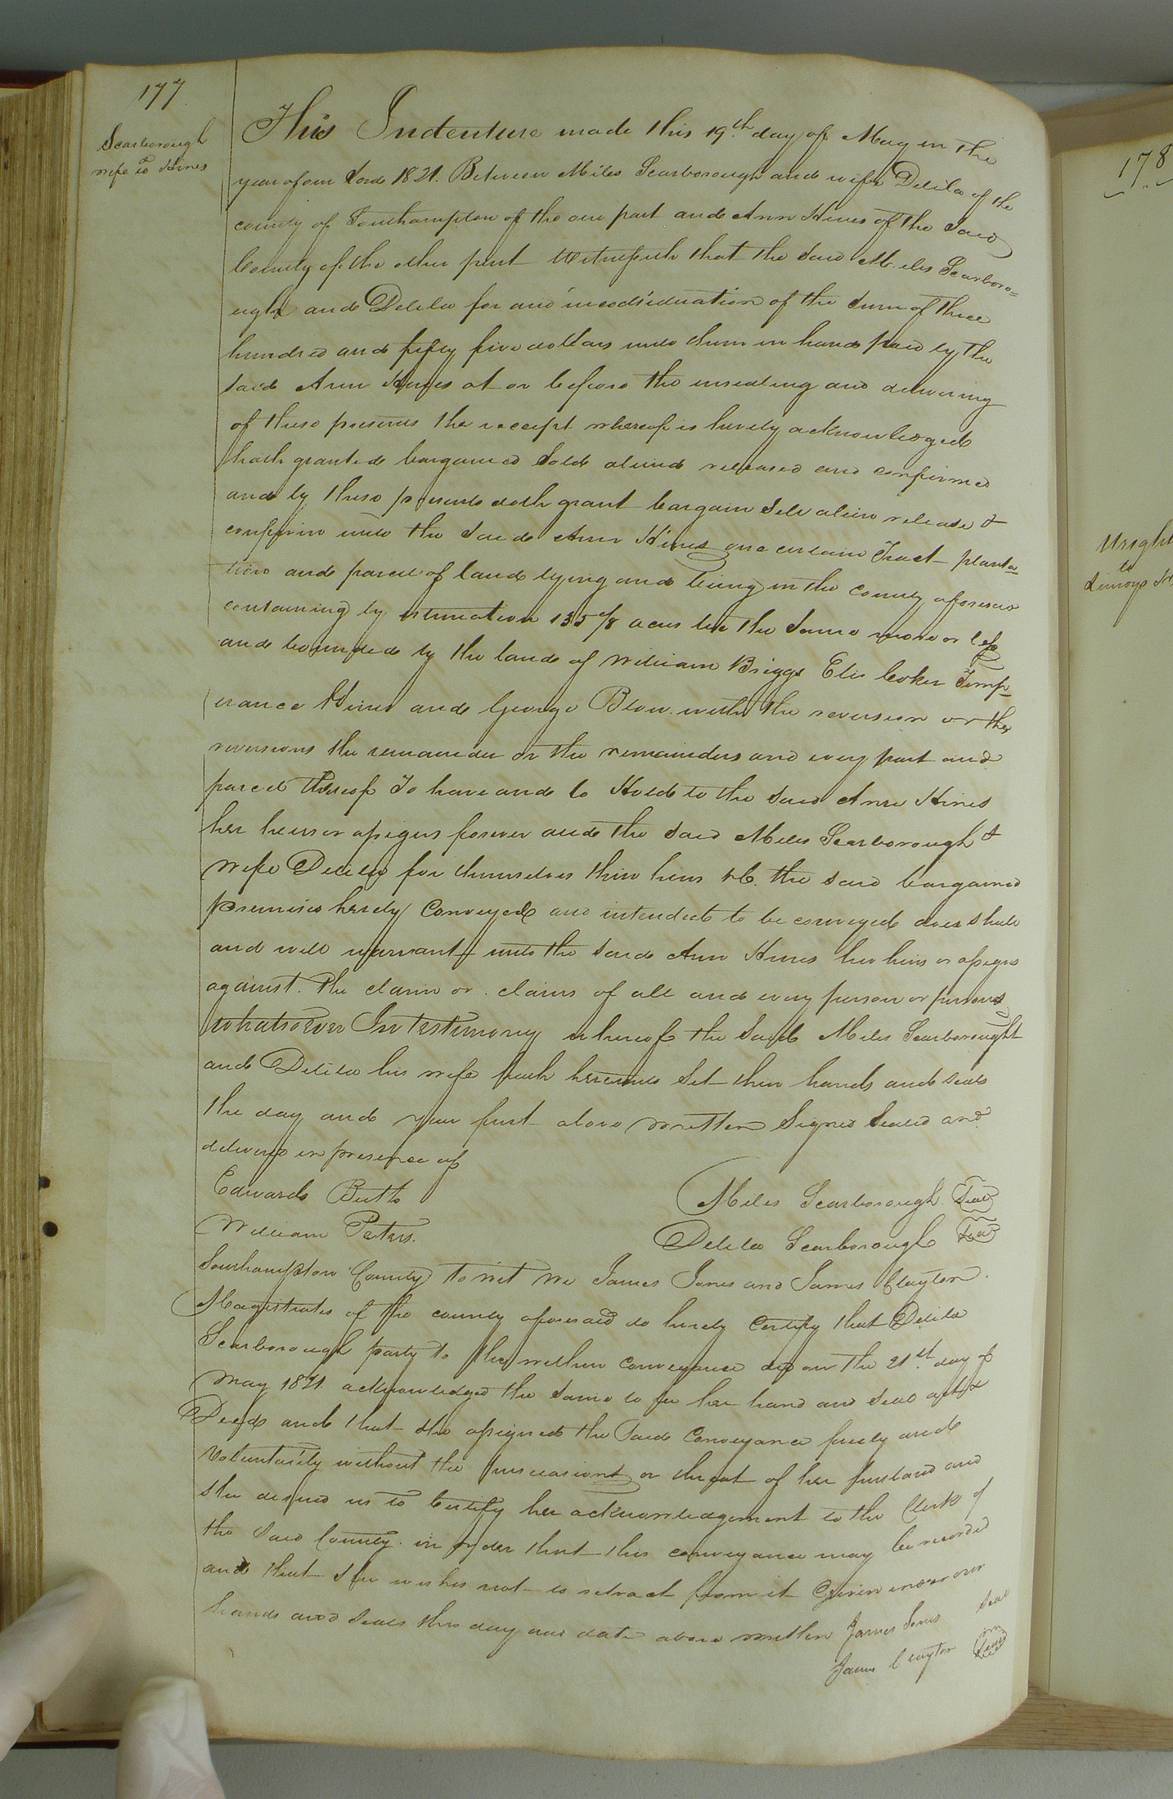 177
Scarborough
wife to Hines
This Indenture made this 19th day of May in the
year of our Lord 1821. Between Miles Scarborough and wife Delila of the
county of Southampton of the one part and Ann Hines of the said
County of the other part Witnesseth that the said Miles Scarboro=
ugh and Delila for and in consideration of the sum of three
hundred and fifty five dollars unto them in hand paid by the
said Ann Hines at or before the ensealing and delivering
of these presents the receipt whereof is hereby acknowledged
hath granted bargained sold aliend released and confirmed
and by these presents doth grant bargain sell alien release &
confirm unto the said Ann Hines one certain Tract planta=
tion and parcel of land lying and being in the county aforesaid
containing by estimation acres be the same more or less
and bounded by the lands of William Briggs Elis Coker Temp=
erance Hines and George Blow with the reversion or the
reversions the remainder or the remainders and every part and
parcel thereof To have and to Hold to the said Ann Hines
her heirs or assigns forever and the said Miles Scarborough &
wife Delila for themselves their heirs &c. the said bargained
premises hereby Conveyed and intended to be conveyed does shall
and will warrant unto the said Ann Hines her heirs or assigns
against the claim or claims of all and every person or persons
whatsoever In testimony whereof the said Miles Scarborough
and Delila his wife hath hereunto set their hands and seals
the day and year first above written Signed sealed and
delivered in presence of
Edwards Butts
Miles Scarborough Seal
William Peters.
Delila Scarborough Seal
Southampton County to wit We James Jones and James Clayton
Magistrates of the county aforesaid do hereby Certify that Delila
Scarborough party to the within conveyance did on the 21st day of
May 1821 acknowledged the same to be her hand and seal act &
Deed and that she assigned the said Conveyance freely and
voluntarily without the persuasions or threat of her husband and
she desired us to Certify her acknowledgement to the Clerk of
the said County in order that this conveyance may be recorded
and that she wishes not to retract from it Given under our
hands and seals this day and date above written James Jones Seal
James Clayton Seal
178
Wright
to